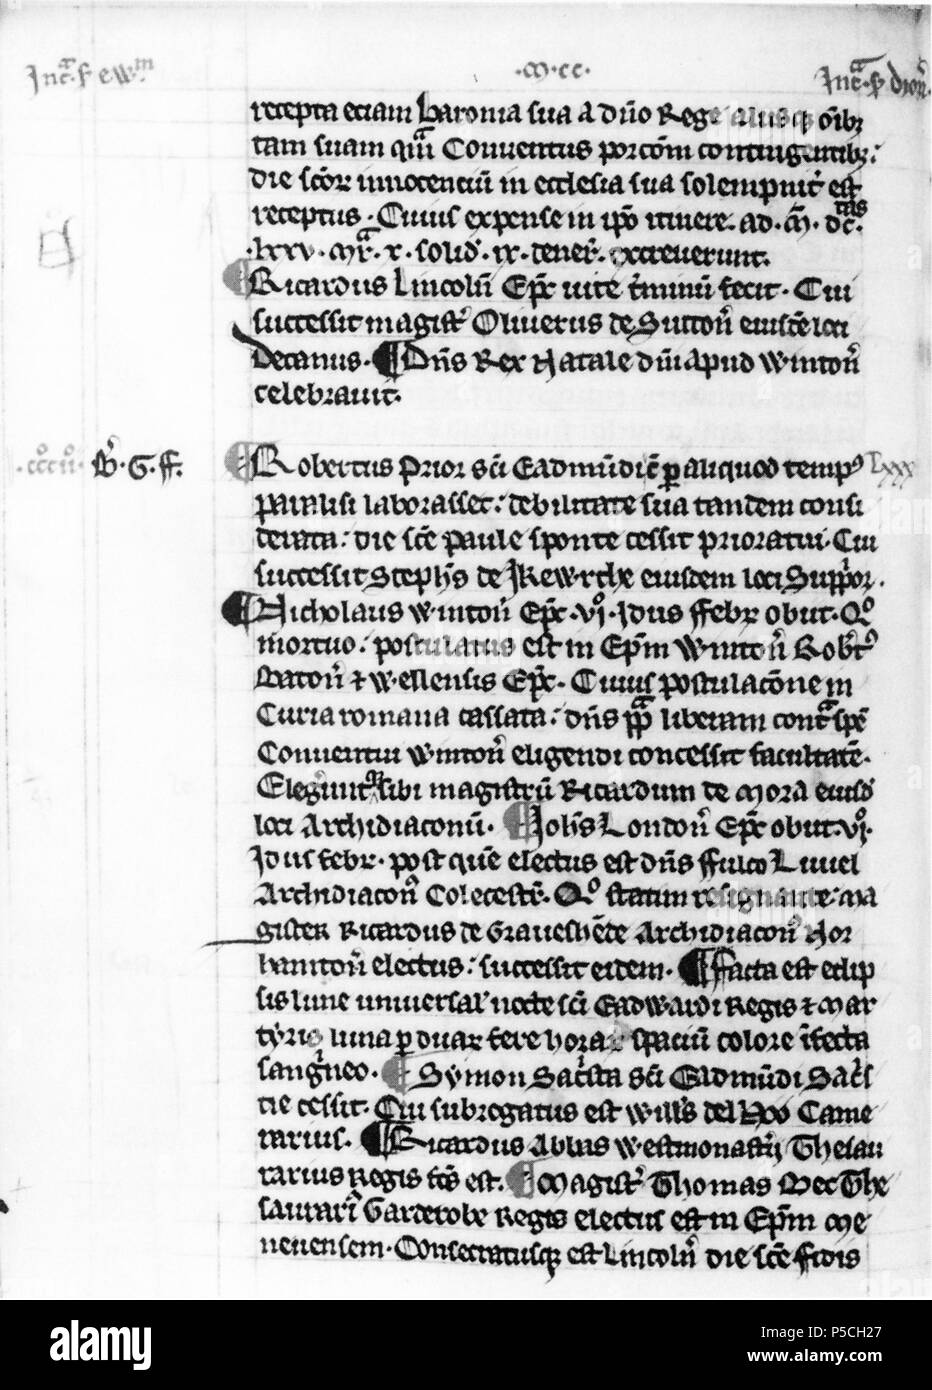 Inca. f. ewm
.M.CC.
Inca. p dion
recepta eciam Baronia sua a dño Rege aliisq; oĩbȝ
tam suam qᵃm Conuentus porcõm contingentibȝ:
die scõr innocenciũ in ecclesia sua solempnit' est
receptus. Cuius expense in ip̃o itinere ad .M. dc.tas
.lxxv. mᵃr. x. solid'. ix. dener'. excreuerunt.
¶ Ricardus Lincolñ Ep̃c uite t'minũ fecit. Cui
successit magist' Oliuerus de Suttoñ eiusdẽ loci
Decanus. ¶ Dñs Rex Natale dñi apud Wintoñ
celebrauit.
.ccccii. B. G. ff.
¶ Robertus Prior sc̃i Eadmũdi cũ p aliquod temp⁹ Lxxx
paralisi laborasset: debilitate sua tandem consi
derata: die sc̃e Paule sponte cessit prioratui. Cui
successit Steph's de Ikewrthe eiusdem loci Supp'or.
¶ Nicholaus Wintoñ Ep̃c .vj. Idus ffebr obiit. Qo
mortuo: postulatus est in Ep̃m Wintoñ Rob't⁹
Batoñ ⁊ Wellensis Ep̃c. Cuius postulacõne in
Curia romana cassata: dñs pᵃpa liberam contᵃ spẽ
Conuentui Wintoñ eligendi concessit facultatẽ.
Elegiunt sibi magistrũ Ricardum de Mora eiusd'
loci Archidiaconũ. ¶ Joh's Londoñ Ep̃c obiit .vj.
Idus febr. post quẽ electus est dñs ffulco Liuuel
Archidiacoñ Colecestr̃. Qo statim resignante: ma
gister Ricardus de Graueshẽde Archidiacoñ Nor
hamtoñ electus: successit eidem. ¶ ffacta est eclip
sis lune uniuersal' nocte sc̃i Eadwardi Regis ⁊ Mar
tyris luna p duar fere horar spaciũ colore ĩfecta
sang'neo. ¶ Symon Sac'sta sc̃i Eadmũdi Sac's
tie cessit. Cui subrogatus est Will's del Hoo Came
rarius. ¶ Ricardus Abbas Westmonastr̃ij Thesau
rarius Regis fc̃s est. ¶ Magist' Thomas Bec The
saurari⁹ Garderobe Regis electus est in Ep̃m Me
neuensem. Consecratusq; est Lincolñ die sc̃e ffidis
alamy
Image ID: P5CH27
www.alamy.com